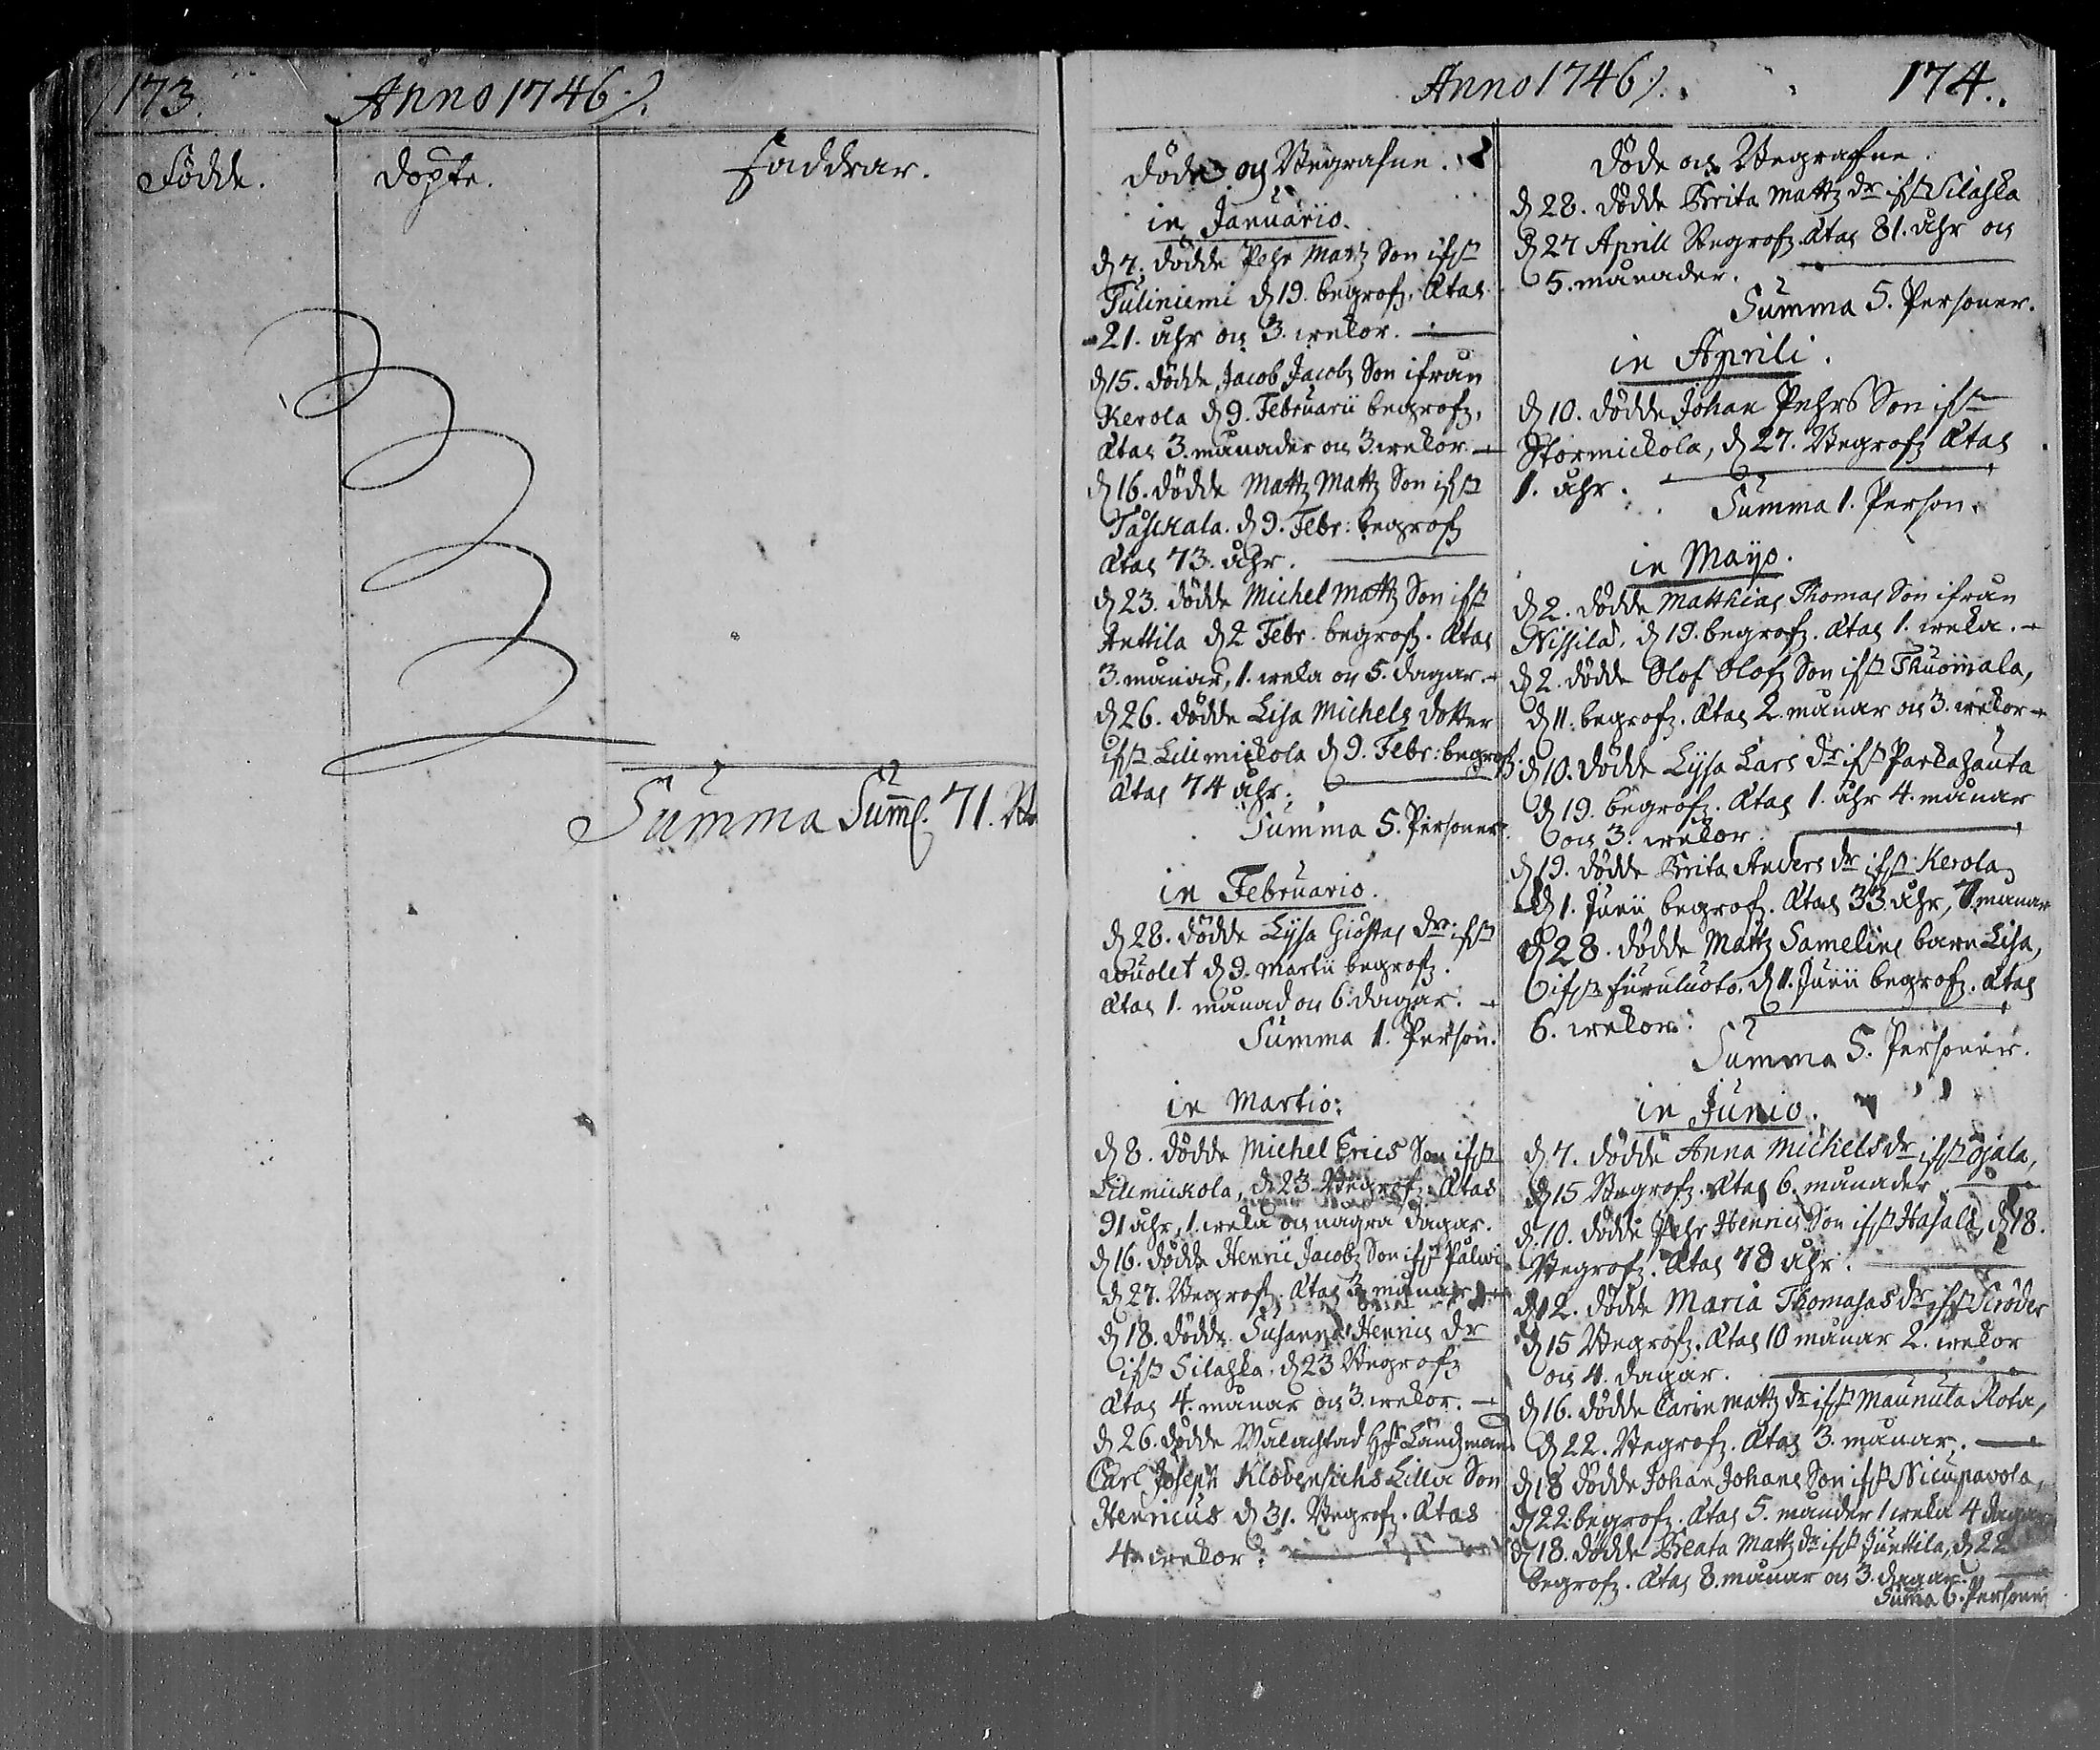 173. Anno 1746.
Födde. Döpte. Faddrar.
Summa Summ. 71. St
Anno 1746. 174.
Döde och Begrafne.
in Januario.
d 7. dödde Pehr Mattz Son ifrå
Tuliniemi d 19. begrofz. Ætas
21. åhr och 3. wekor.
d 15. dödde Jacob Jacobz Son ifrån
Kerola d 9. Februarii begrofz.
Ætas 3. månader och 3. wekor.
d 16. dödde Mattz Mattz Son ifrå
Taskala. d 9. Febr: begrofz
Ætas 73. åhr.
d 23. dödde Michel Mattz Son ifrå
Anttila d 2 Febr. begrofz. Ætas
3. månar, 1. weka och 5. dagar.
d 26. dödde Lisa Michels dotter
ifrå Lillmickola d 9. Febr: begrofz.
Ætas 74 åhr.
Summa 5. Personer.
in Februario.
d 28. dödde Lysa Giöstas dr ifrå
wuolet d 9. Martii begrofz.
Ætas 1. månad och 6. dagar.
Summa 1. Person.
in Martio:
d 8. dödde Michel Erics Son ifrå
Lillmickola, d 23 Begrofz. Ætas
91 åhr, 1. weka och nagra dagar.
d 16. dödde Henric Jacobz Son ifrå Palwi
d 27. Begrofz. Ætas 3 månar
d 18. dödde Susanna Henrics dr
ifrå Silaska. d 23 Begrofz
Ætas 4. månar och 3. wekor.
d 26. dödde Walachtad Hr Länsman
Carl Joseph Lilla Son
Henricus d 31. Begrofz. Ætas
4. wekor.
Döde och Begrafne.
d 28. dödde Brita Mattz dr ifrå Silaska
d 27 Aprill Begrofz Ætas 81. åhr och
5. månader.
Summa 5. Personer.
in Aprili.
d 10. dödde Johan Pehrs Son ifrå
Stormickola, d 27. Begrofz Ætas
1. åhr.
Summa 1. Person.
in Mayo.
d 2. dödde Matthias Thomas Son ifrån
Nissilä, d 19. begrofz. Ætas 1. weka.
d 2. dödde Olof Olofz Son ifrå Thuomala,
d 11. begrofz. Ætas 2. månar och 3. wekor
d 10. dödde Lysa Lars dr ifrå Parkahauta
d 19. begrofz. Ætas 1. åhr 4. månar
och 3. wekor.
d 19. dödde Brita Anders dr ifrå Kerola
d 1. Junii begrofz. Ætas 33. åhr, 7. månar
d 28. dödde Mattz Samelins barn Lisa,
ifrå furuluoto. d 1. Junii begrofz. Ætas
6. wekor.
Summa 5. Personer.
in Junio.
d 7. dödde Anna Michels dr ifrå Ojala,
d 15 Begrofz. Ætas 6. månader
d 10. dödde Pehr Henrics Son ifrå Hasala, d 18.
Begrofz. Ætas 78 åhr.
d 12. dödde Maria Thomasas dr ifrå
d 15 Begrofz. Ætas 10 månar 2. wekor
och 4. dagar.
d 16. dödde Carin Mattz dr ifrå Maunula Kota,
d 22. Begrofz. Ætas 3. månar.
d 18 dödde Johan Johans Son ifrå
d 22 begrofz. Ætas 5. månder 1 weka 4 dagar
d 18. dödde Beata Mattz dr ifrå Juttila, d 22
begrofz. Ætas 8. månar och 3. dagar.
Summa 6. Personer